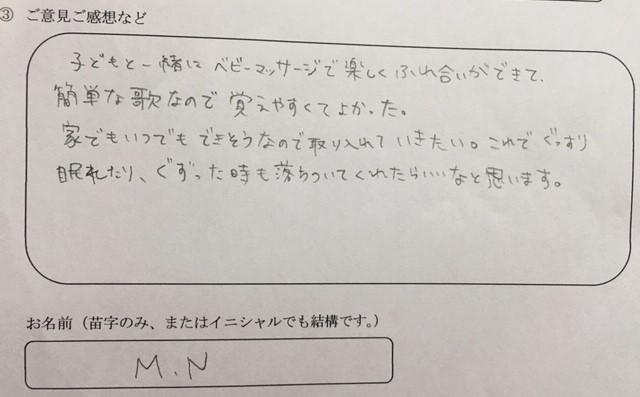 ③ ご意見ご感想など
子どもと一緒に ベビーマッサージで楽しくふれ合いができて、
簡単な歌なので 覚えやすくてよかった。
家でもいつでも できそうなので取り入れて いきたい。これで ぐっすり
眠れたり、ぐずった時も落ちついてくれたらいいなと思います。
お名前（苗字のみ、またはイニシャルでも結構です。）
M.N